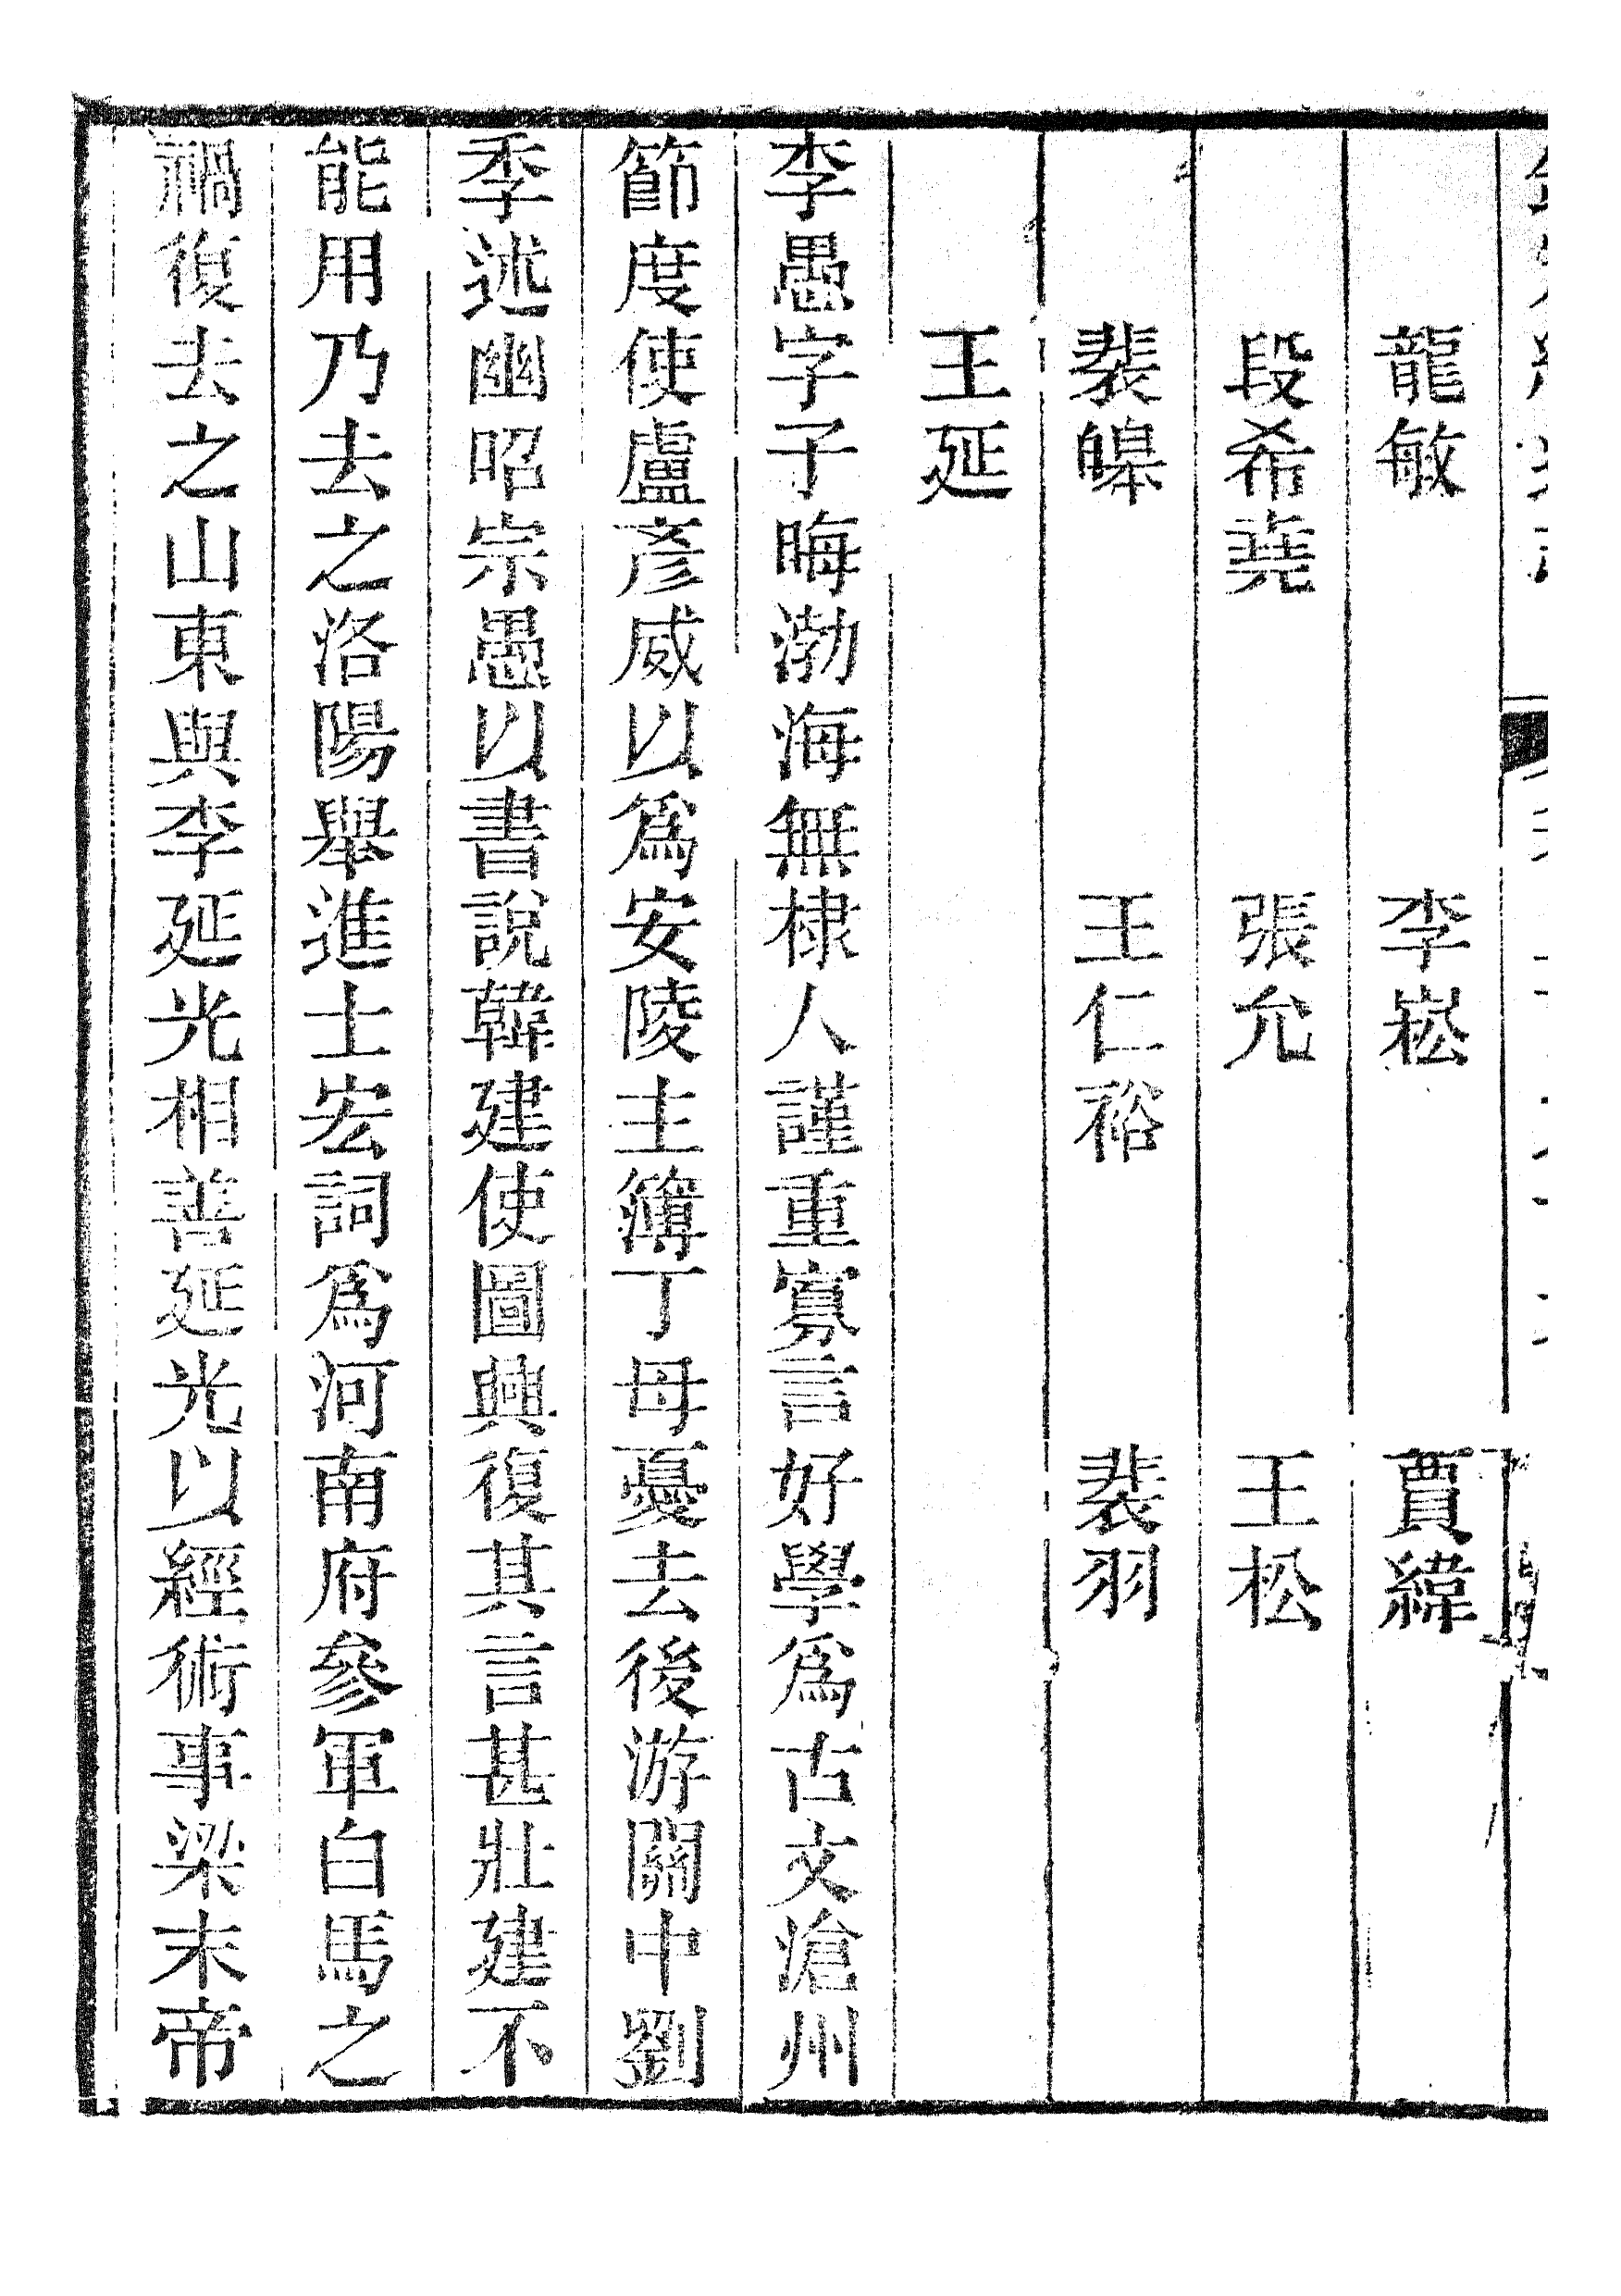 龍敏　李崧　賈緯
段希堯　張允　王松
裴皞　王仁裕　裴羽
王延
李愚字子晦渤海無棣人謹重寡言好學爲古文滄州
節度使盧彥威以爲安陵主簿丁母憂去後游關中劉
季述幽昭宗愚以書說韓建使圖興復其言甚壯建不
能用乃去之洛陽舉進士宏詞爲河南府參軍白馬之
禍復去之山東與李延光相善延光以經術事梁末帝